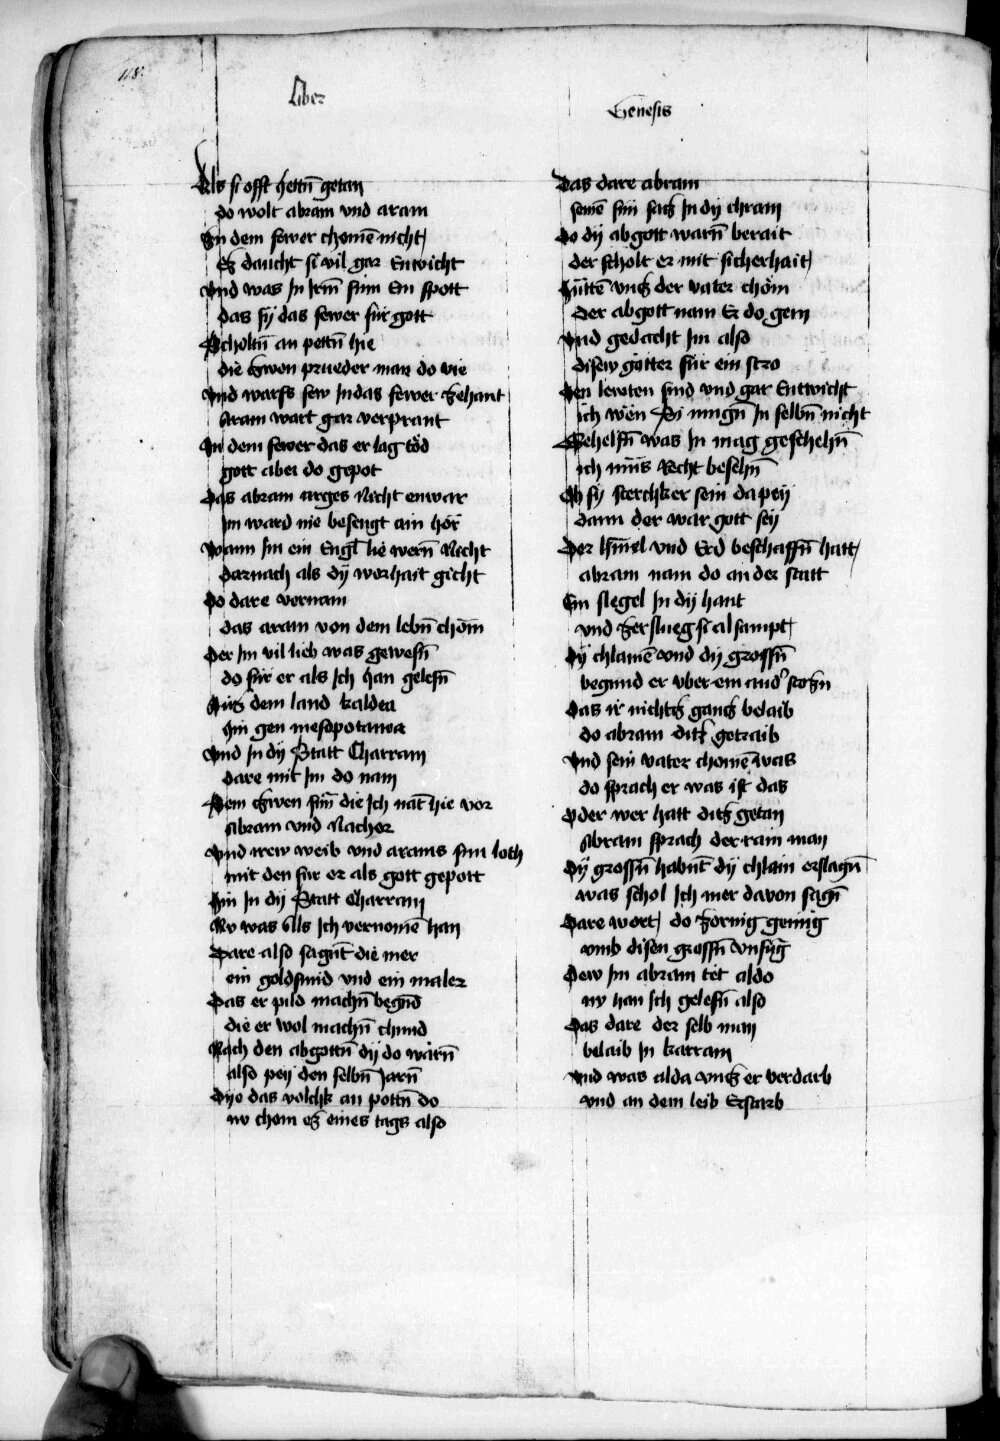 118.
Liber
Genesis
Als si offt hettn̄ getan
do wolt abram vnd aram
In dem fewer chomē nicht
Ez daucht si vil gar Entwicht
Vnd was In Irm̄ sinn Ein spott
das sy das fewer für gott
Scholtn̄ an pettn̄ hie
die zwen prueder man do vie
Vnd warff sew In das fewer zehant
Aram wart gar verprant
In dem fewer das er lag töd
gott aber do gepot
Das abram arges Nicht enwar
Im ward nie besengt ain hör
Wann Im ein Engl lie wern̄ Nicht
darnach als dÿ worhait gicht
Do dare vernam
das aram von dem lebn̄ chöm
Der Im vil lieb was gewesn̄
do für er als Ich han gelesn̄
Aus dem land kaldea
hin gen mesopotamia
Vnd In dÿ Statt Charram
dare mit Im do nam
Dem zwen sün̄ die Ich nāt hie vor
Abram vnd Nachor
Vnd irew weib vnd arams sun loth
mit den für er als gott gepott
Hin In dÿ Statt Charram
Nv was Als Ich vernomē han
Dare also sagn̄t die mer
ein goldsmid vnd ein maler
Das er pild machn̄ begūd
die er wol machn̄ chund
Nach den abgottn̄ dÿ do wärn̄
also peÿ den selbn̄ Jarn̄
Dÿe das volchk an pettn̄ do
nv chom ez eines tags also
Das dare abram
seinē sun satz In dÿ chram
Do dÿ abgott warn̄ berait
der scholt er mit sicherhait
Hüttē vntz der vater chöm
Der abgott nam Er do gem
Vnd gedacht Im also
disew götter für ein stro
Den lewten sind vnd gar Entwicht
ich wën Si mugn̄ In selbn̄ nicht
Gehelffn̄ was In mag geschehn̄
ich mus Recht besehn̄
Ob sÿ sterchker sein da peÿ
dann der war gott seÿ
Der hīmel vnd Erd beschaffn̄ hatt
abram nam do an der statt
Ein slegel In dÿ hant
vnd zerslueg si al sampt
Dÿ chlainē vnd dÿ grossn̄
begund er vber ein and' stozn̄
Das ir nichtz gantz belaib
do abram ditz getraib
Vnd sein vater chomē was
do sprach er was ist das
Oder wer hatt ditz getan
Abram sprach der rain man
Dÿ grossn̄ habn̄t dÿ chlain erslagn̄
was schol Ich mer davon sagn̄
Dare wort do zornig genüg
vmb disen grossn̄ vnfüg
Dew Im abram tët aldo
nv han Ich gelesn̄ also
Das dare der selb man
belaib In karram
Vnd was alda vntz er verdarb
vnd an dem leib Erstarb